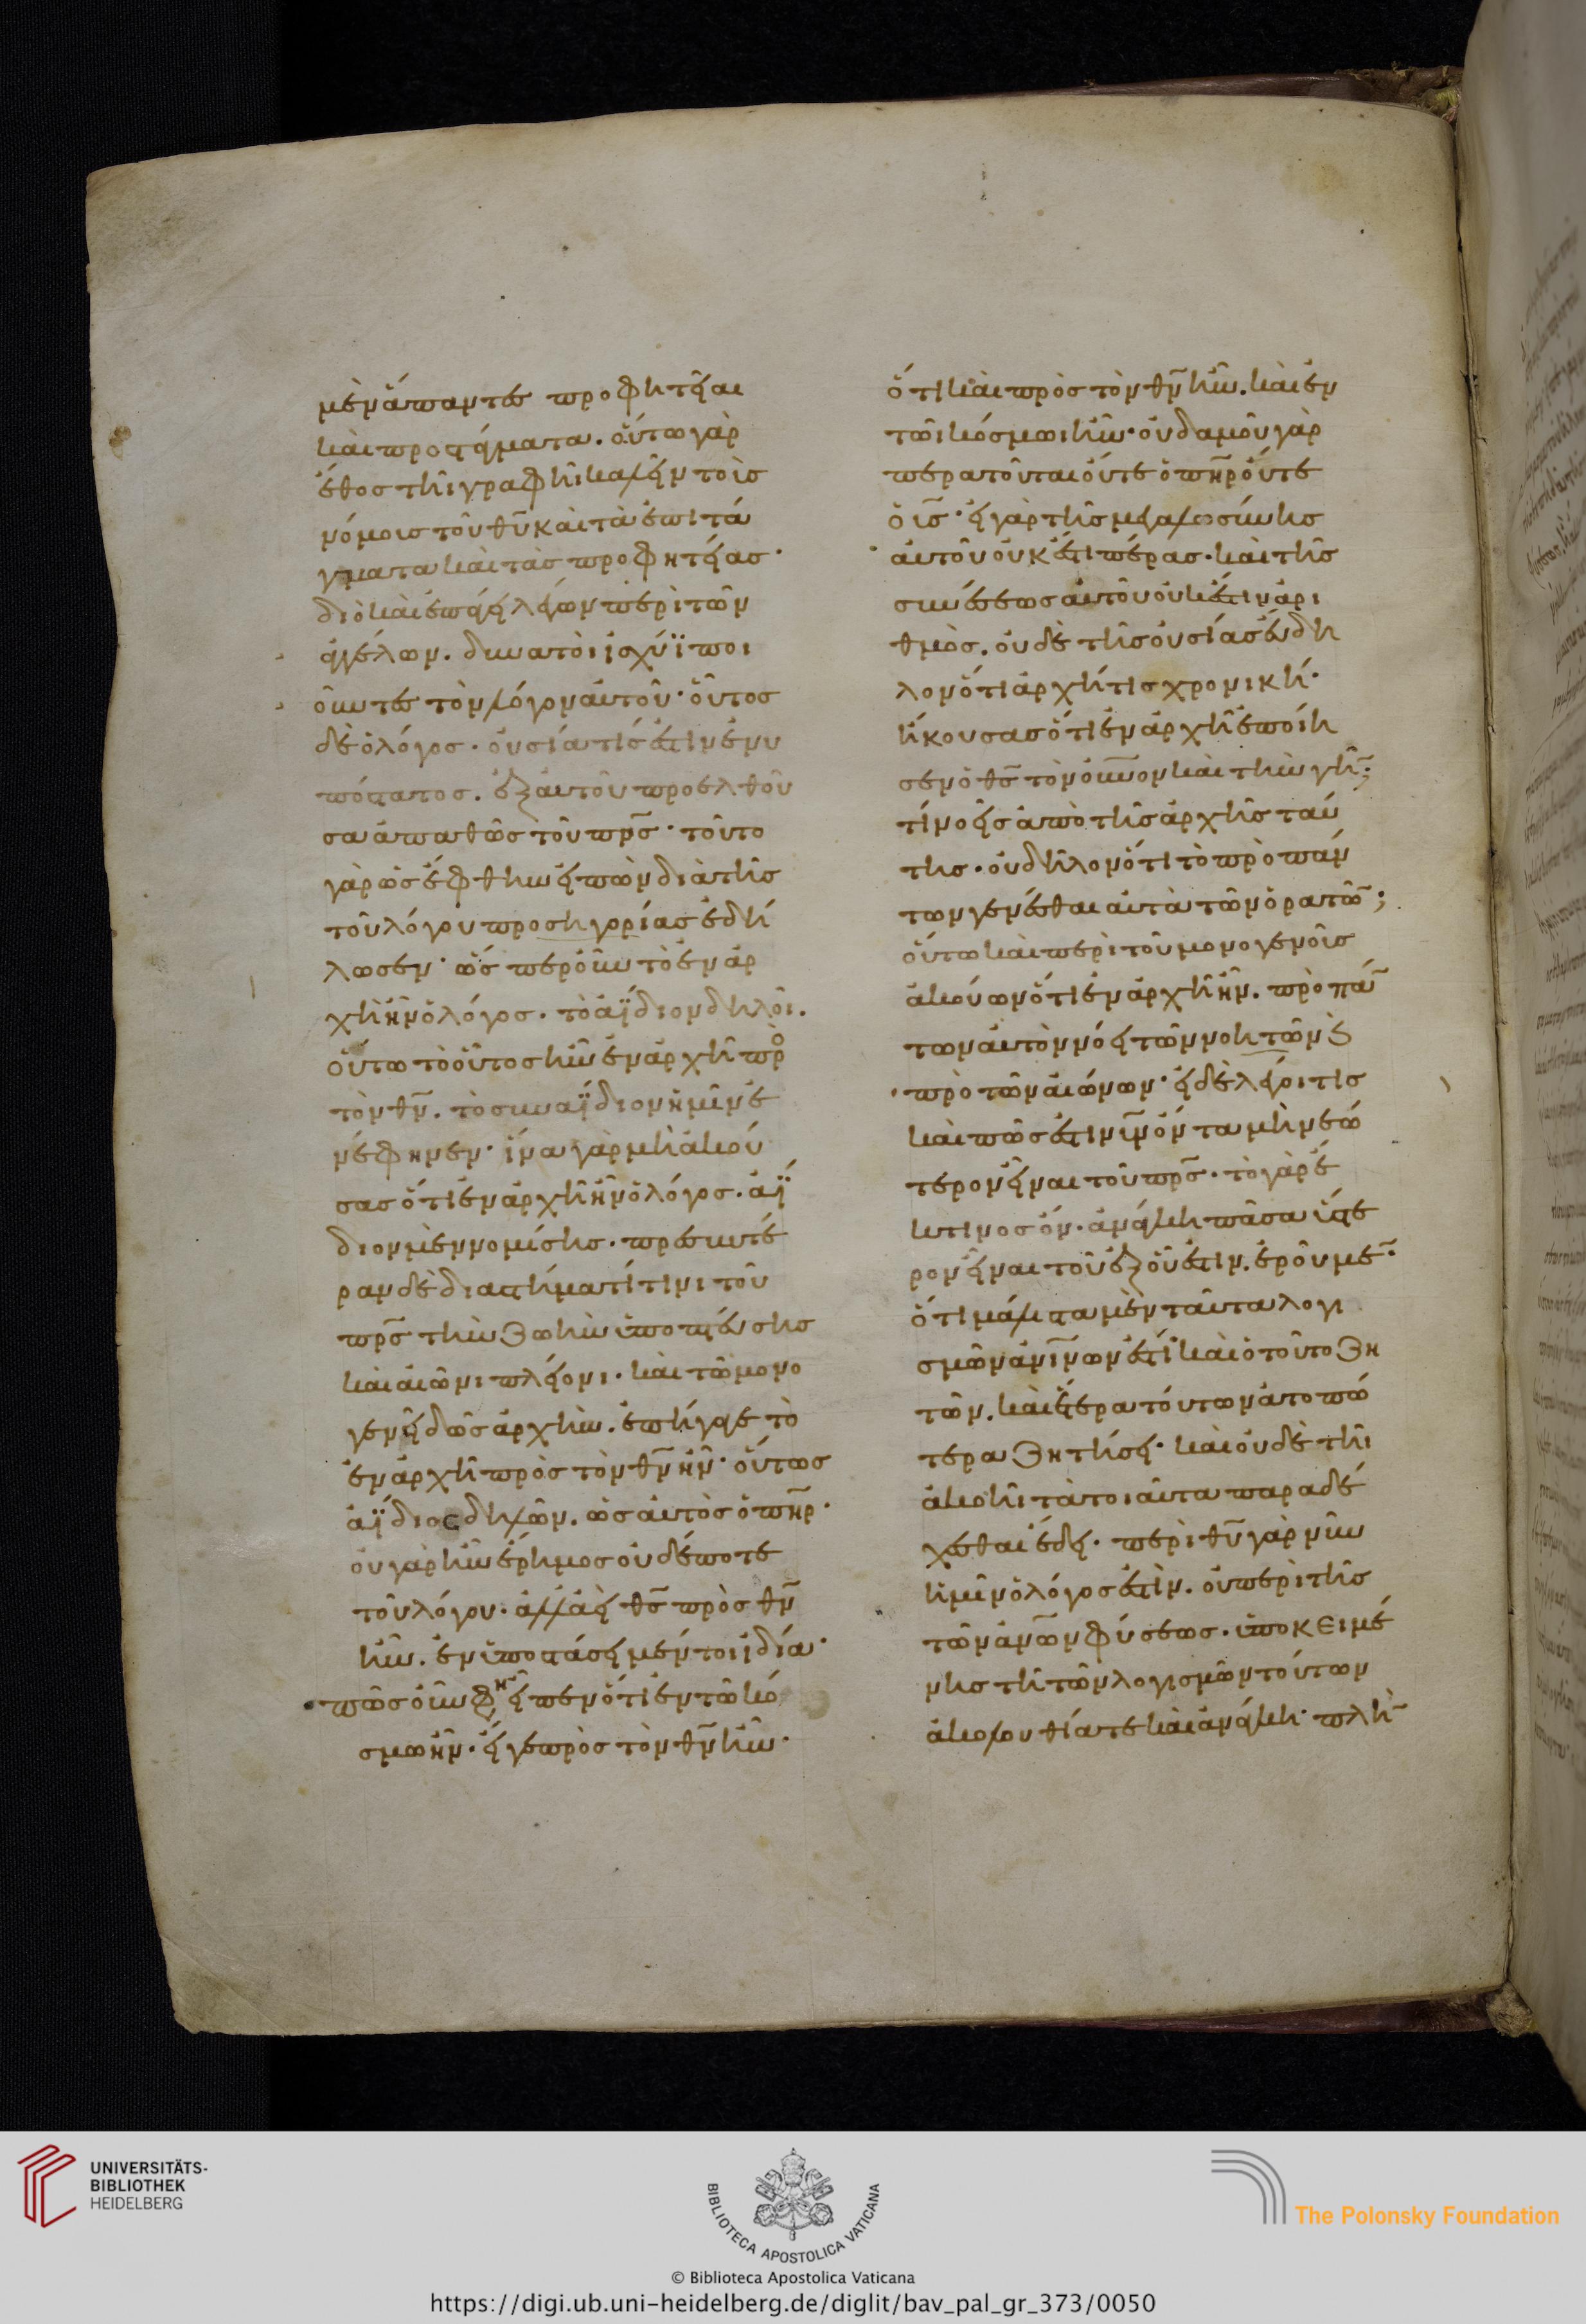 μὲν ἅπαντες προφητεῖαι
καὶ προστάγματα. οὕτω γὰρ
ἔθος τῆι γραφῆι καλεῖν τοῖς
νόμοις τοῦ θῡ καὶ τὰ ἐπιτά
γματα καὶ τὰς προφητείας·
διὸ καὶ ἔπᾴει λέγων περὶ τῶν
ἀγγέλων. δυνατοὶ ἰσχύϊ ποι
οῦντες τὸν λόγον αὐτοῦ· οὗτος
δὲ ὁ λόγος. οὐσία τίς ἐστιν ἐνυ
πόστατος. ἐξ αὐτοῦ προελθοῦ
σα ἀπαθῶς τοῦ πρ̅σ̅· τοῦτο
γὰρ ὡς ἔφθην εἰπὼν διὰ τῆς
τοῦ λόγου προσηγορίας ἐδή
λωσεν· ὥσπερ οὖν τὸ ἐν ἀρ
χῆ ἦν ὁ λόγος. τὸ ἀΐδιον δηλοῖ.
οὕτω τὸ οὗτος ἦν ἐν ἀρχῆ πρὸ
τὸν θν̅. τὸ συναΐδιον ἡμῖν ἐ
νέφηνεν· ἵνα γὰρ μὴ ἀκού
σας ὅτι ἐν ἀρχῆ ἦν ὁ λόγος. ἀΐ
διον μὲν νομίσης. πρεσβυτέ
ραν δὲ διαστήματί τινι τοῦ
πρ̅σ̅ τὴν ζωὴν ὑποπτεύσης
καὶ αἰῶνι πλείονι. καὶ τῶ μονο
γενεῖ δῶς ἀρχὴν. ἐπήγαγε τὸ
ἐν ἀρχῆ πρὸς τὸν θν̅ ἦν· οὕτως
ἀΐδιος δηλῶν. ὡς αὐτὸς ὁ πηρ̅.
οὐ γὰρ ἦν ἔρημος οὐδέποτε
τοῦ λόγου. ἀλλ' ἀεὶ θς̅ πρὸς θν̅
ἦν. ἐν ὑποστάσει μέντοι ἰδία·
πῶς οὖν φησὶν εἶπεν ὅτι ἐν τῶ κό
σμω ἦν. εἴγε πρὸς τὸν θν̅ ἦν·
ὅτι καὶ πρὸς τὸν θν̅ ἦν. καὶ ἐν
τῶι κόσμωι ἦν· οὐδαμοῦ γὰρ
περατοῦται οὔτε ὁ πηρ̅ οὔτε
ὁ ις̅· εἰ γὰρ τῆς μεγαλωσύνης
αὐτοῦ οὐκ ἔστι πέρας. καὶ τῆς
συνέσεως αὐτοῦ οὐκ ἔστιν ἀρι
θμὸς. οὐδὲ τῆς οὐσίας εὔδη
λον ὅτι ἀρχή τις χρονική·
ἤκουσας ὅτι ἐν ἀρχῆ ἐποίη
σεν ὁ θς̅ τὸν οὐνον καὶ τὴν γῆν;
τί νοεῖς ἀπὸ τῆς ἀρχῆς ταύ
της. οὐ δῆλον ὅτι τὸ πρὸ πάν
των γενέσθαι αὐτὰ τῶν ὁρατῶν;
οὕτω καὶ περὶ τοῦ μονογενοῦς
ἀκούων ὅτι ἐν ἀρχῆ ἦν. πρὸ πάν
των αὐτὸν νόει τῶν νοητῶν κ(αὶ)
πρὸ τῶν αἰώνων· εἰ δὲ λέγοι τις
καὶ πῶς ἔστιν υν̅ ὄντα μὴ νεώ
τερον εἶναι τοῦ πρ̅σ̅. τὸ γὰρ ἔ
κ τινος ὄν. ἀνάγκη πᾶσα ὕστε
ρον εἶναι τοῦ ἐξ οὗ ἐστιν. ἐροῦμεν·
ὅτι μάλιστα μὲν ταῦτα λογι
σμῶν ἀνίνων ἐστί· καὶ ὁ τοῦτο ζη
τῶν. καὶ ἕτερα τούτων ἀτοπώ
τερα ζητήσει· καὶ οὐδὲ τῆι
ἀκοῆι τὰ τοιαῦτα παραδέ
χεσθαι ἔδει. περὶ θῡ γὰρ νῦν
ἡμῖν ὁ λόγος ἐστὶν. οὐ περὶ τῆς
τῶν ἀνῶν φύσεως. ὑποκειμέ
νης τῆ τῶν λογισμῶν τούτων
ἀκολουθία τε καὶ ἀνάγκη· πλὴν
UNIVERSITÄTS-
BIBLIOTHEK
HEIDELBERG
BIBLIOTECA APOSTOLICA VATICANA
The Polonsky Foundation
© Biblioteca Apostolica Vaticana
https://digi.ub.uni-heidelberg.de/diglit/bav_pal_gr_373/0050